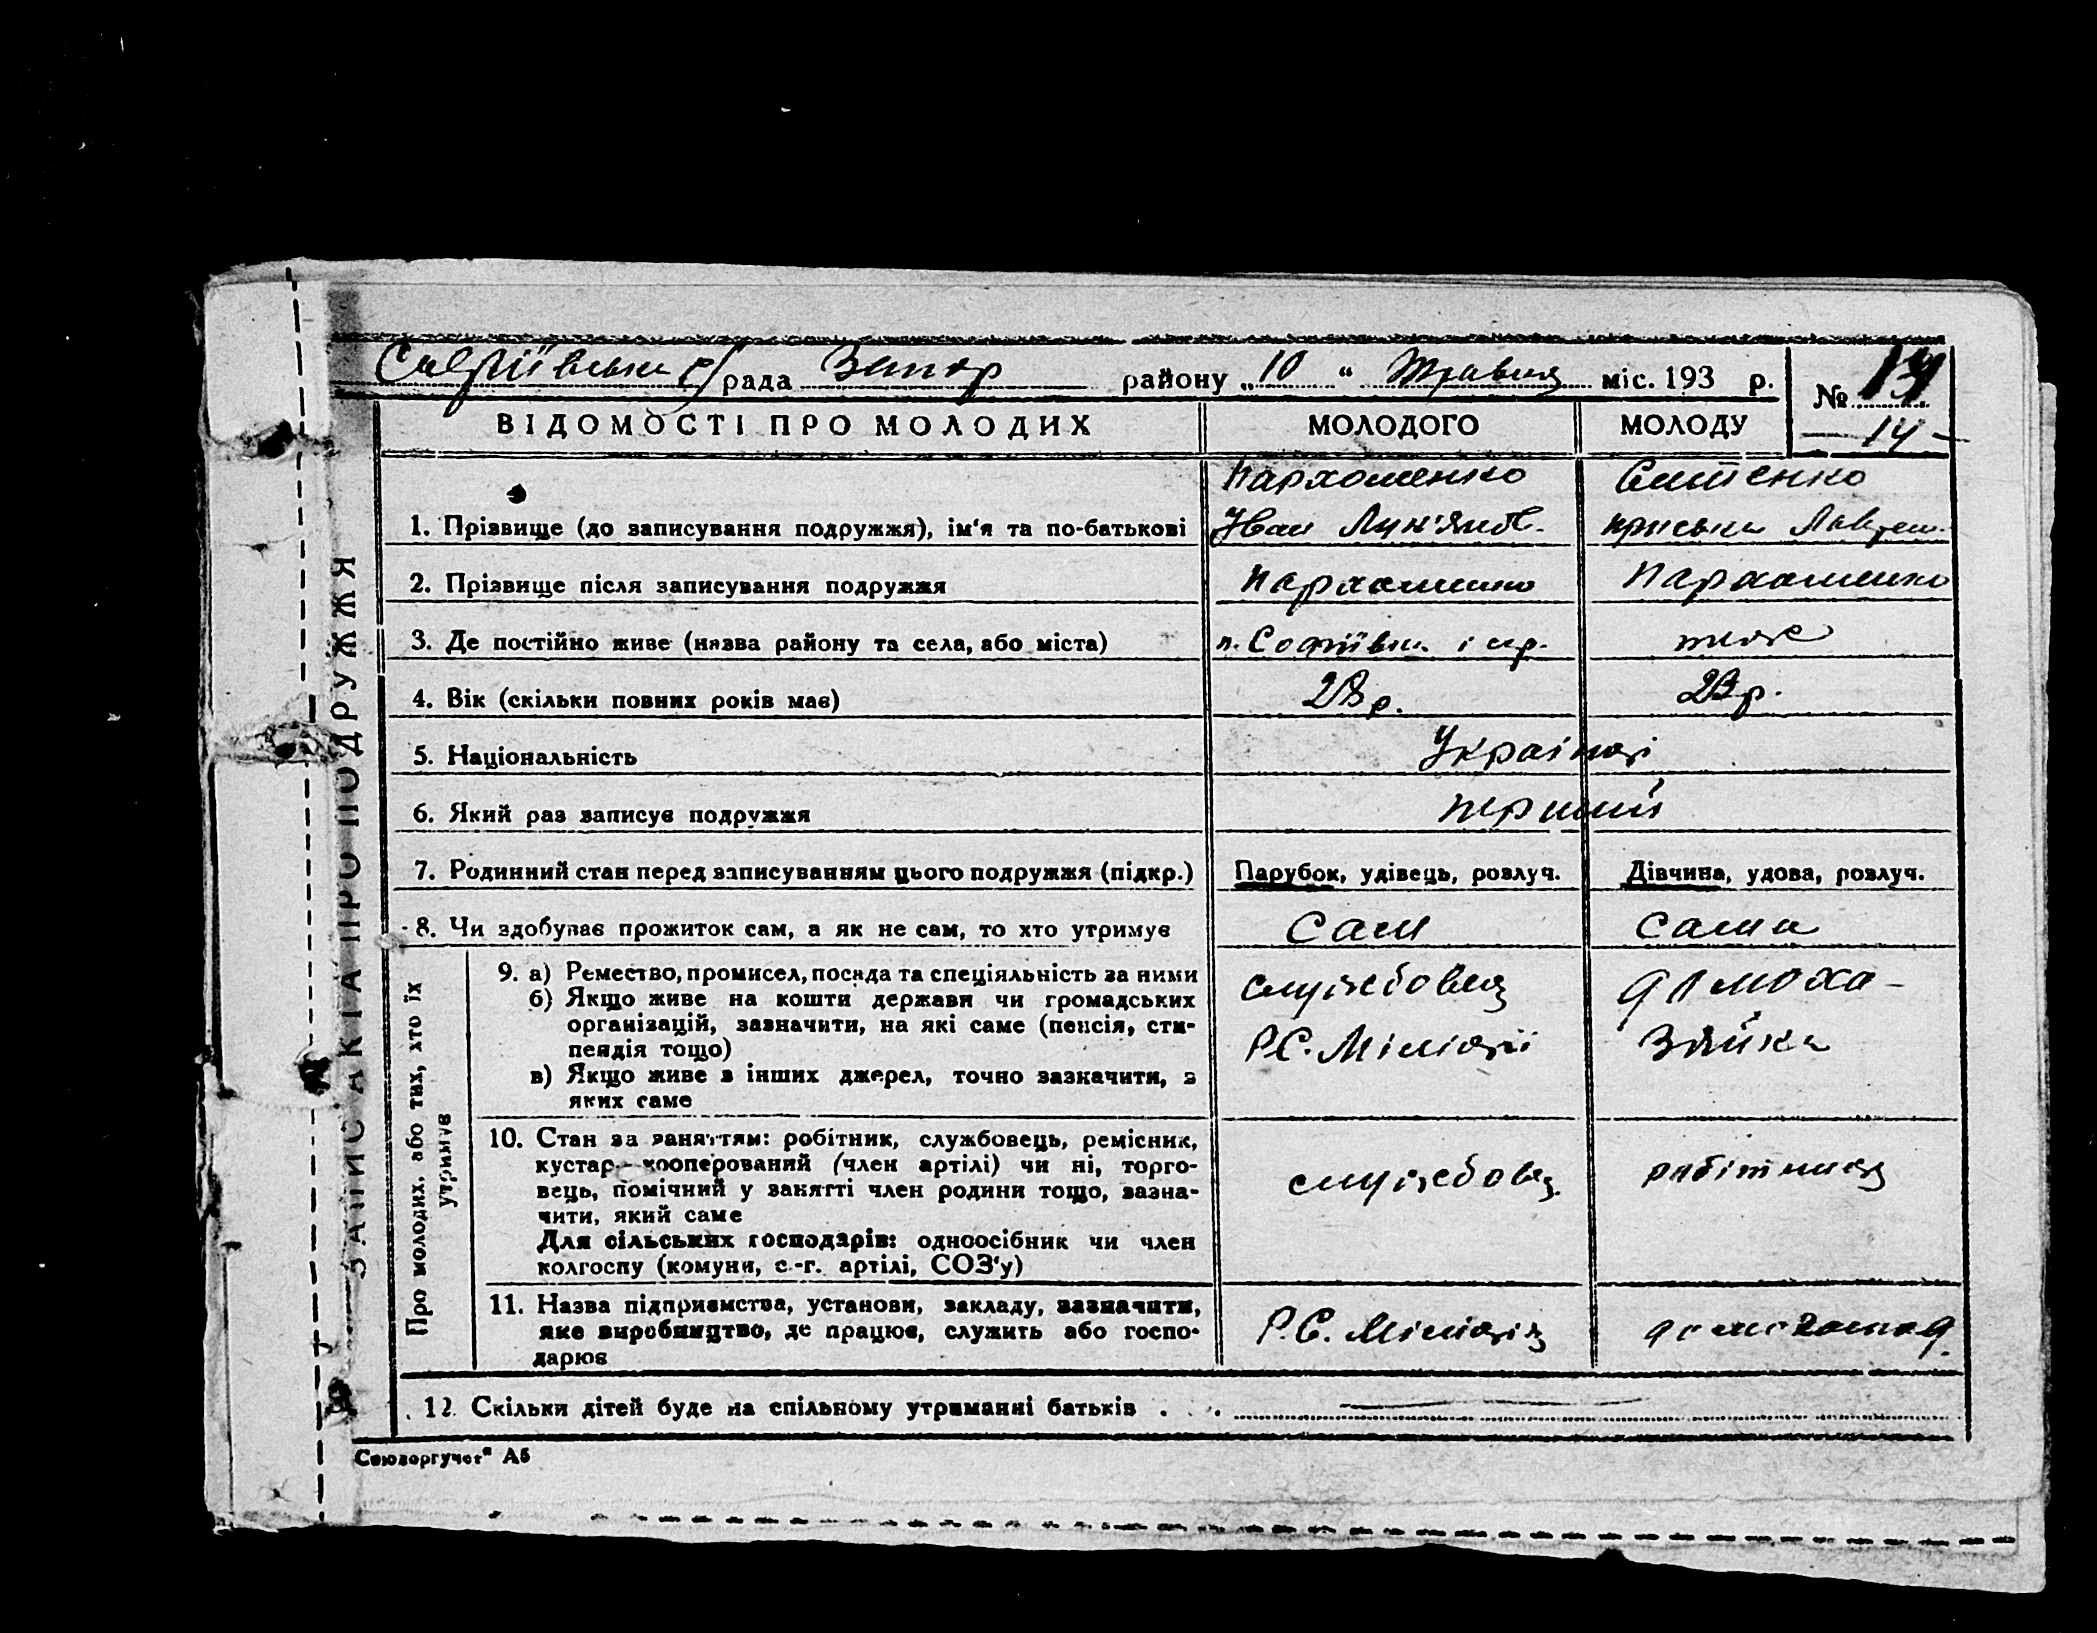 Софіївська с/рада Запор району „10“ Травня міс. 193 р.
№ 14
14
ВІДОМОСТІ ПРО МОЛОДИХ МОЛОДОГО МОЛОДУ
ЗАПИС АКТА ПРО ПОДРУЖЖЯ
Пархоменко
1. Прізвище (до записування подружжя), ім‘я та по-батькові Іван Лук'янов. Лаврен.
2. Прізвище після записування подружжя Пархоменко Пархоменко
3. Де постійно живе (назва району та села, або міста) с. Софіївка теж
4. Вік (скільки повних років має) 23 р.
5. Національність Українці
6. Який раз записує подружжя перший
7. Родинний стан перед записуванням цього подружжя (підкр.) Парубок, удівець, розлуч. Дівчина, удова, розлуч.
8. Чи здобуває прожиток сам, а як не сам, то хто утримує Сам сама
Про молодих, або тих, хто їх
утримує
9. а) Ремество, промисел, посада та спеціяльність за ними службовец домоха-
б) Якщо живе на кошти держави чи громадських
організацій, зазначити, на які саме (пенсія, сти-
пендія тощо) Р.С. Міліції зяйка
в) Якщо живе з інших джерел, точно зазначити, з
яких саме
10. Стан за заняттям: робітник, службовець, ремісник,
кустар - кооперований (член артілі) чи ні, торго-
вець, помічний у занятті член родини тощо, зазна-
чити, який саме службовец робітниця
Для сільських господарів: одноосібник чи член
колгоспу (комуни, с.-г. артілі, СОЗ‘у)
11. Назва підприємства, установи, закладу, зазначити,
яке виробництво, де працює, служить або госпо-
дарює Р.С. Міліція
12. Скільки дітей буде на спільному утриманні батьків . . . —
Союзоргучет" А5